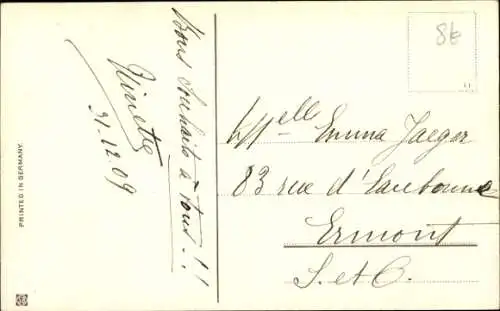 Bons Souhaits à tous!!
Ninette
31.12.09
PRINTED IN GERMANY
8€
Melle Emma Jaeger
83 rue d'Eaubonne
Ermont
S. et O.